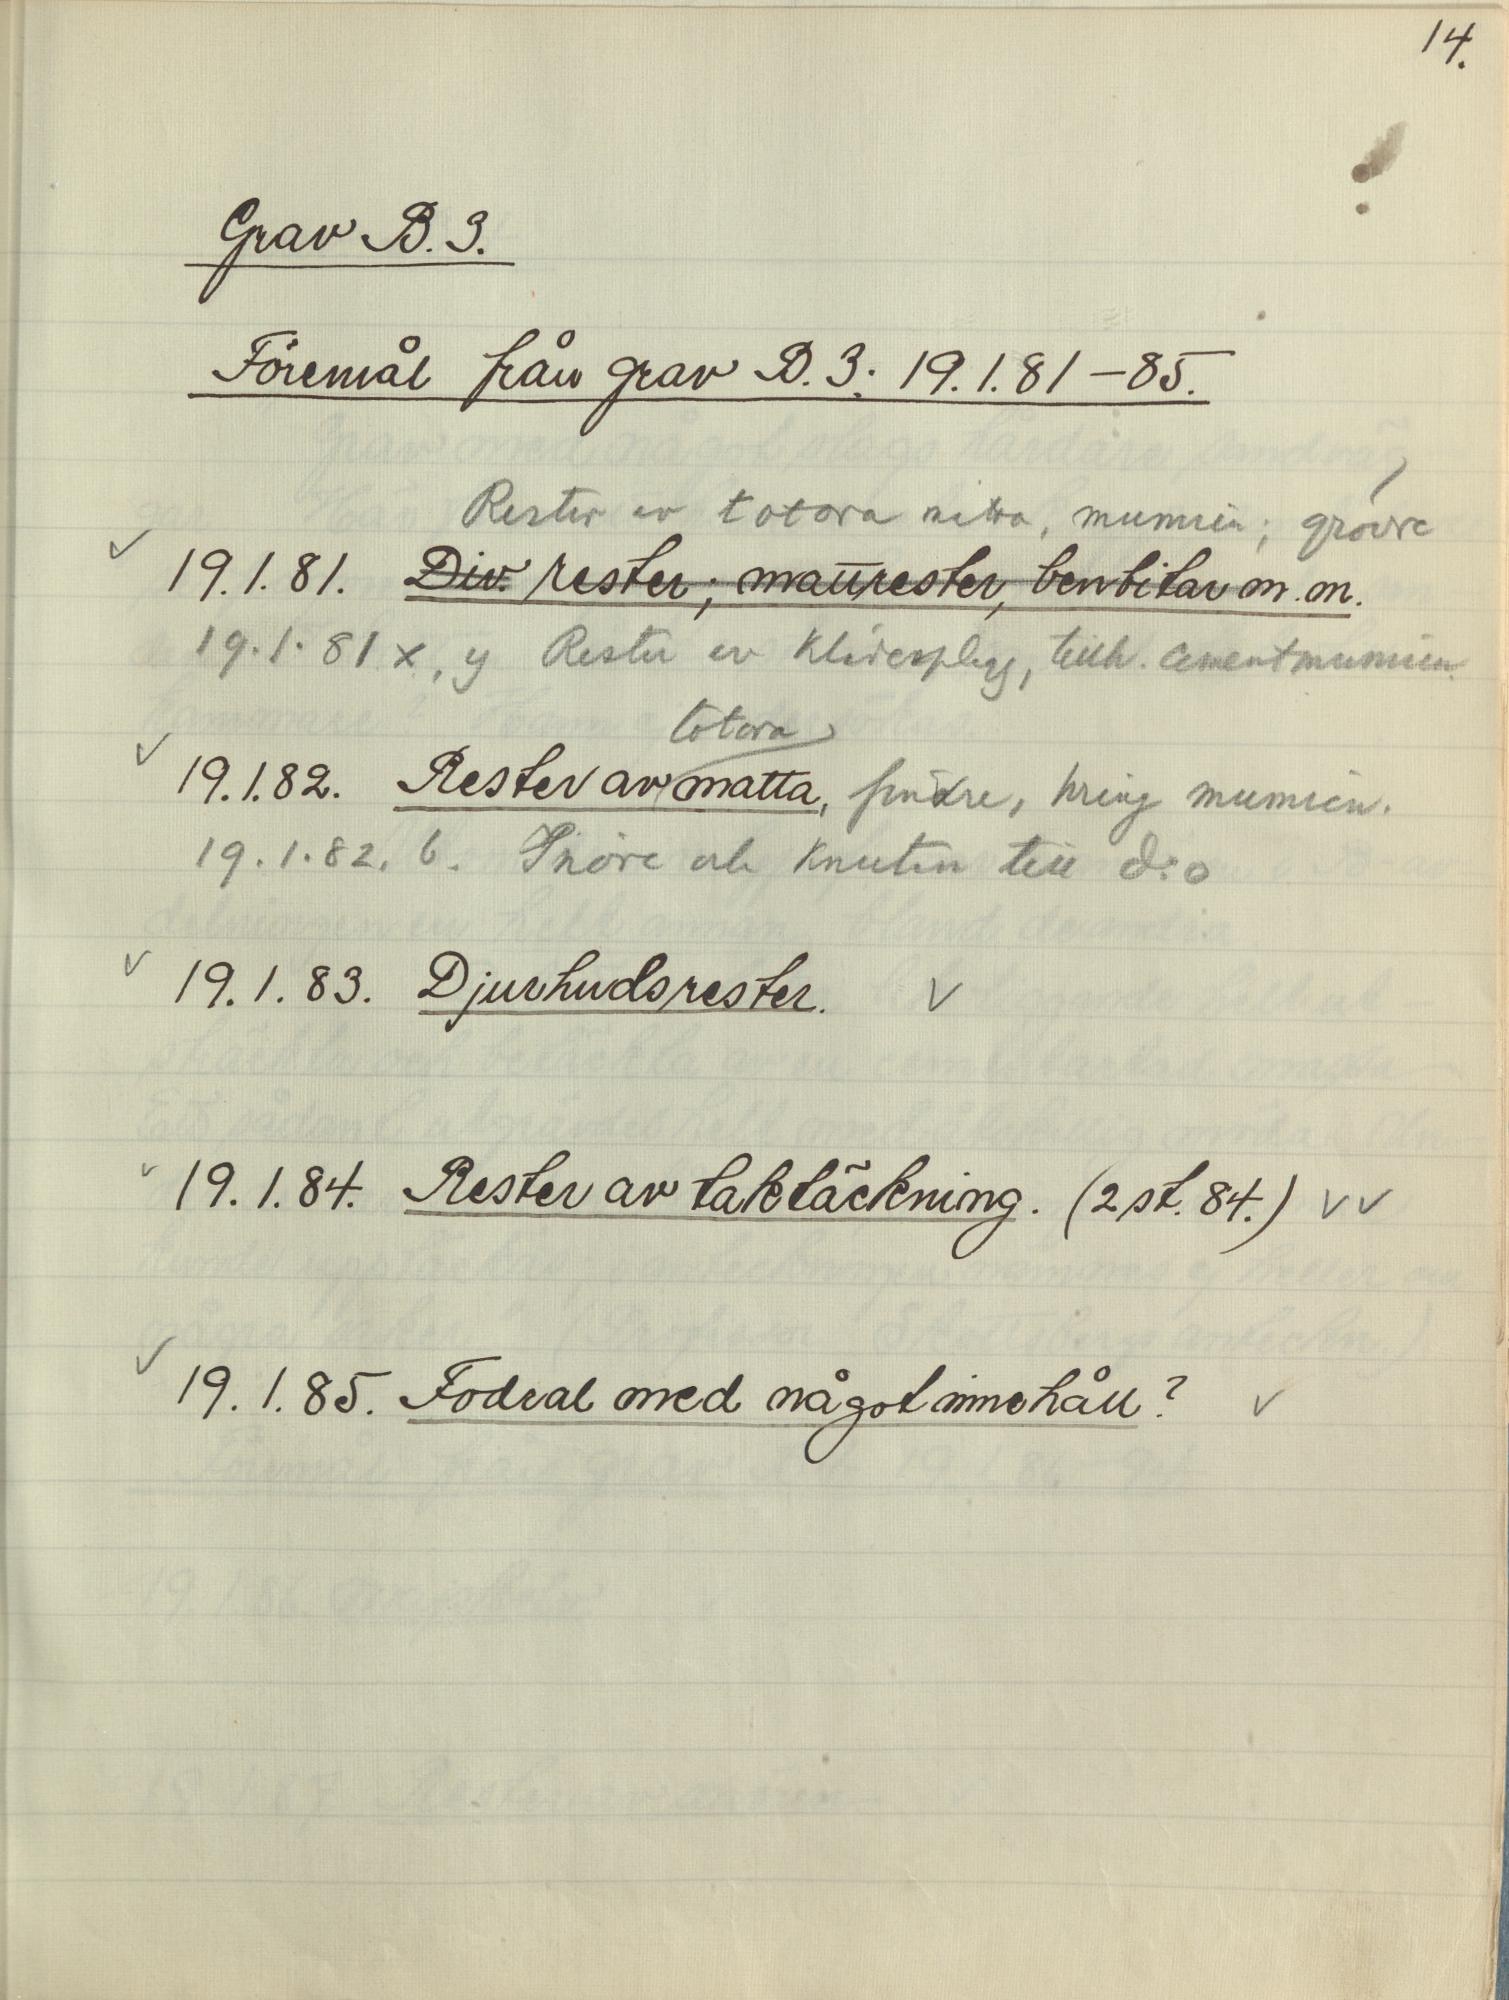 14.
Grav B. 3.
Föremål från grav B. 3: 19. 1. 81 – 85.
Rester av totora matta, mumien; grövre
19. 1. 81. Div. rester; mattrester, benbitar m. m.
19. 1. 81 x, y Rester av klädesplagg, tillh. cementmumien.
totora
19. 1. 82. Rester av matta, finare, kring mumien.
19. 1. 82. b. Snöre och knuten till d:o
19. 1. 83. Djurhudsrester.
19. 1. 84. Rester av taktäckning. (2 st. 84.)
19. 1. 85. Fodral med något innehåll?